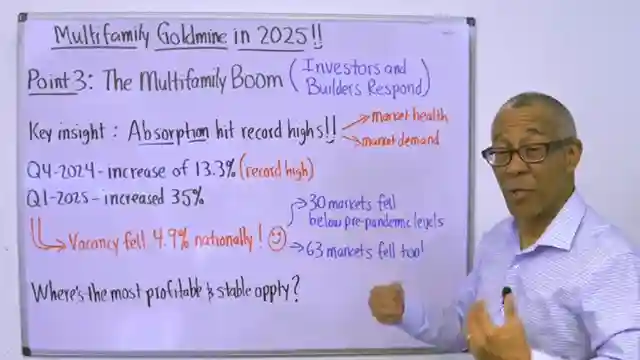 Multifamily Goldmine in 2025!!
Point 3: The Multifamily Boom (Investors and Builders Respond)
Key insight: Absorption hit record highs!!
→ market health
→ market demand
Q4-2024 - increase of 13.3% (record high)
Q1-2025 - increased 35%
→ Vacancy fell 4.9% nationally!
→ 30 markets fell
below pre-pandemic levels
→ 63 markets fell too!
Where's the most profitable & stable oppty?